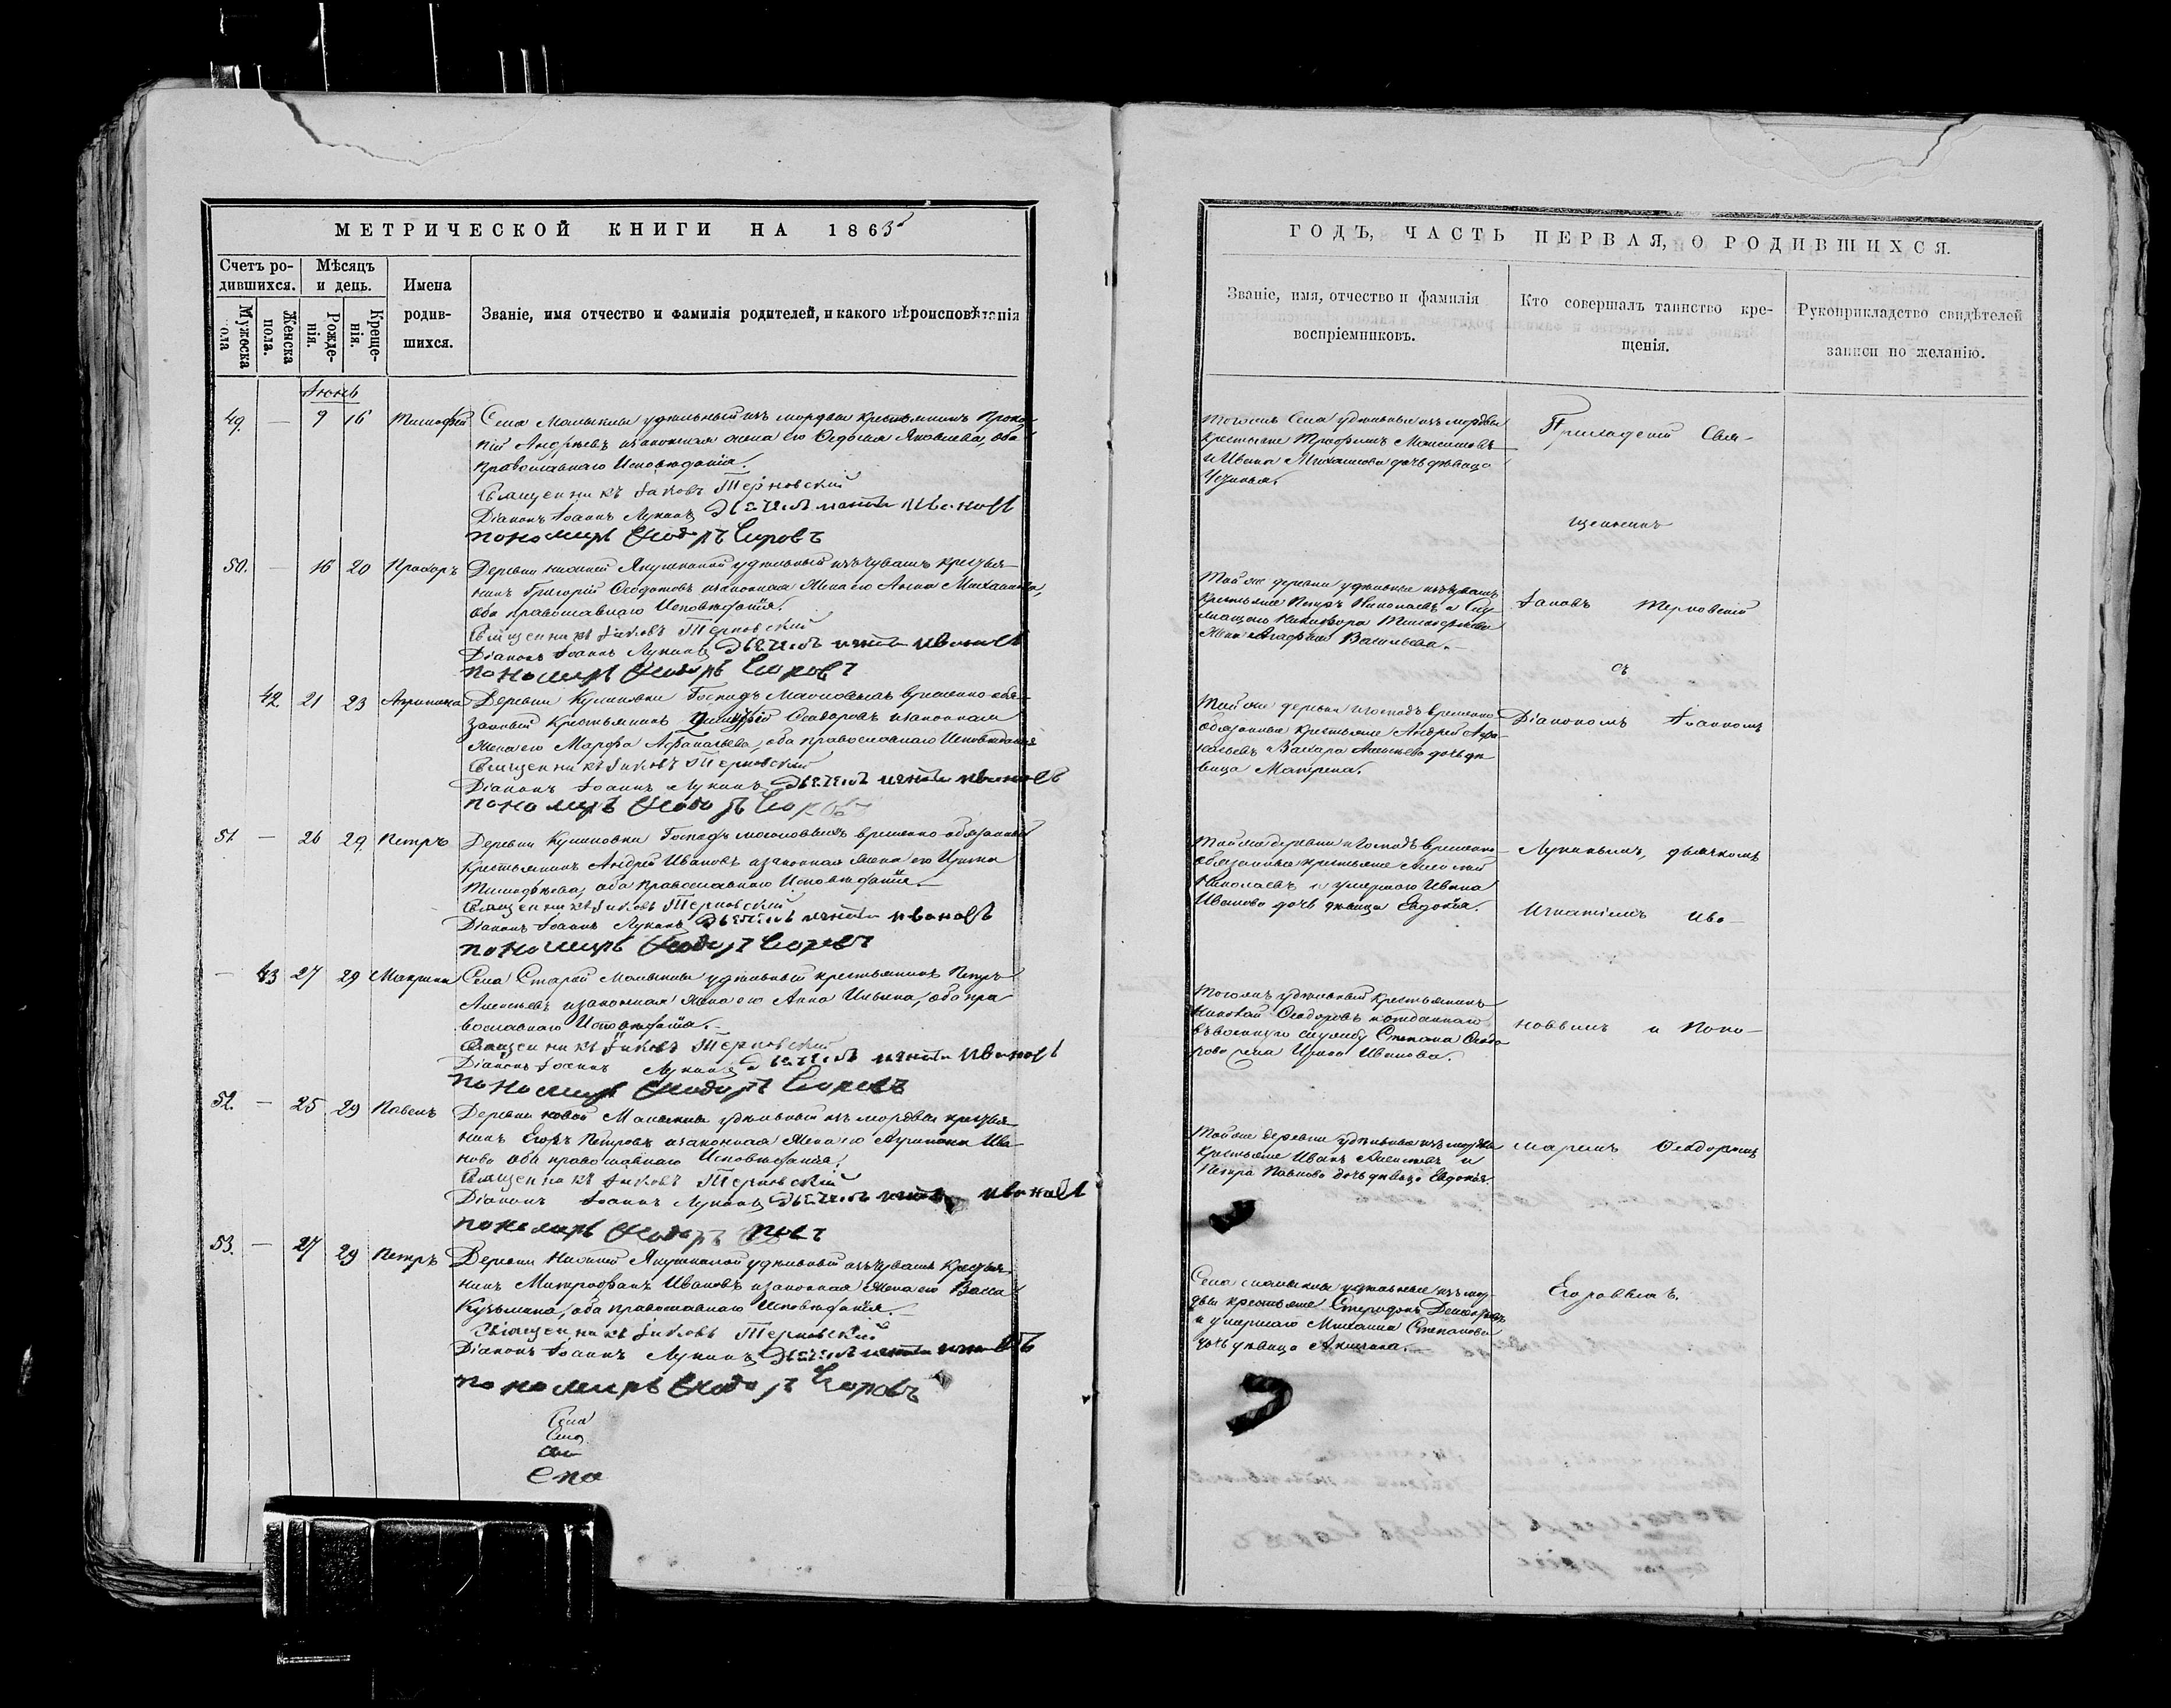 МЕТРИЧЕСКОЙ КНИГИ НА 1865
Счетъ ро-
дившихся.
Мѣсяцъ
и день.
Мужеска
пола
Женска
пола.
Рожде-
нія.
Креще-
нія.
Имена
родив-
шихся.
Званіе, имя отчество и фамилія родителей, и какого вѣроисповѣданія
Іюнь
49. — 9 16 Тимофей Села Малыклы удѣльный изъ мордвы крестьянинъ Проко-
пій Андреевъ и законная жена его Ѳедосія Яковлева, оба
православнаго Исповѣданія.
Священникъ Іаковъ Терновскій
Діаконъ Іоаннъ Лукинъ Дьячекъ Игнатій Ивановъ
пономарь Ѳеодоръ Егоровъ
50. — 16 20 Прохоръ Деревни нижней Якушкиной удѣльный изъ чувашъ крестья-
нинъ Григорій Ѳеодотовъ и законная жена его Анна Михайлова,
оба православнаго Исповѣданія.
Священникъ Іаковъ Терновскій
Діаконъ Іоаннъ Лукинъ Дьячекъ Игнатій Ивановъ
пономарь Ѳеодоръ Егоровъ
42 21 23 Агрипина Деревни Куликовки Господъ временно-обя-
занный Крестьянинъ Ѳеодоровъ и законная
жена его Марфа Афанасьева, оба православнаго Исповѣданія
Священникъ Іаковъ Терновскій
Діаконъ Іоаннъ Лукинъ Дьячекъ Игнатій Ивановъ
пономарь Ѳеодоръ Егоровъ
51. — 26 29. Петръ Деревни Куликовки Господъ временно-обязанный
Крестьянинъ Андрей Ивановъ и законная жена его Ирина
Тимофѣева, оба Православнаго Исповѣданія.
Священникъ Іаковъ Терновскій
Діаконъ Іоаннъ Лукинъ Дьячекъ Игнатій Ивановъ
пономарь Ѳеодоръ Егоровъ
— 43 27 29 Макрина Села Старой Малыклы удѣльный крестьянинъ Петръ
Алексѣевъ и законная жена его Анна Ильина, оба пра-
вославнаго Исповѣданія.
Священникъ Іаковъ Терновскій
Діаконъ Іоаннъ Лукинъ Дьячекъ Игнатій Ивановъ
пономарь Ѳеодоръ Егоровъ
52. — 25 29 Павелъ Деревни новой Малыклы удѣльный изъ мордвы крестья-
нинъ Егоръ Петровъ и законная жена его Агрипина Ива-
нова оба православнаго Исповѣданія.
Священникъ Іаковъ Терновскій
Діаконъ Іоаннъ Лукинъ Дьячекъ Игнатій Ивановъ
пономарь Ѳеодоръ
53. — 27 29 Петръ Деревни Нижней Якушкиной удѣльный изъ чувашъ Крестья-
нинъ Митрофанъ Ивановъ и законная жена его Васса
Кузьмина, оба православнаго Исповѣданія.
Священникъ Іаковъ Терновскій
Діаконъ Іоаннъ Лукинъ Дьячекъ Игнатій
пономарь Ѳеодоръ Егоровъ
Села
Села
Села
ГОДЪ, ЧАСТЬ ПЕРВАЯ, О РОДИВШИХСЯ.
Званіе, имя, отчество и фамилія
воспріемниковъ.
Кто совершалъ таинство кре-
щенія.
Рукоприкладство свидѣтелей
записи по желанію.
Тогожъ Села удѣльные изъ мордвы
крестьяне Трофимъ Максимовъ
и Ивана Михайлова дочь дѣвица
Устинья.
Той же деревни удѣльные изъ чувашъ
крестьяне Петръ Николаевъ и слу-
жащаго Никифора Тимофѣева
жена Агафья Васильева.
Той же деревни и господъ временно-
обязанные крестьяне Андрей Афа-
насьевъ Захара Алексѣева дочь дѣ-
вица Матрена.
Той же деревни и Господъ временно-
обязанные крестьяне Алексѣй
Николаевъ и умершаго Ивана
Иванова дочь дѣвица Евдокія.
Тогожъ удѣльный крестьянинъ
Николай Ѳеодоровъ и отданнаго
въ военную службу Степана Ѳеодо-
рова жена Ирина Иванова.
Той же деревни удѣльные изъ мордвы
крестьяне Иванъ Алексѣевъ и
Петра Павлова дочь дѣвица Евдокія.
Села Малыклы удѣльные изъ мор-
двы крестьяне Спиридонъ
и умершаго Михаила Степанова
дочь дѣвица Акилина.
Приходскій Свя-
щенникъ
Іаковъ Терновскій
съ
Діакономъ Іоанномъ
Лукинымъ, дьячкомъ
Игнатіемъ Ива-
новымъ и Поно-
маремъ Ѳеодоромъ
Егоровымъ.